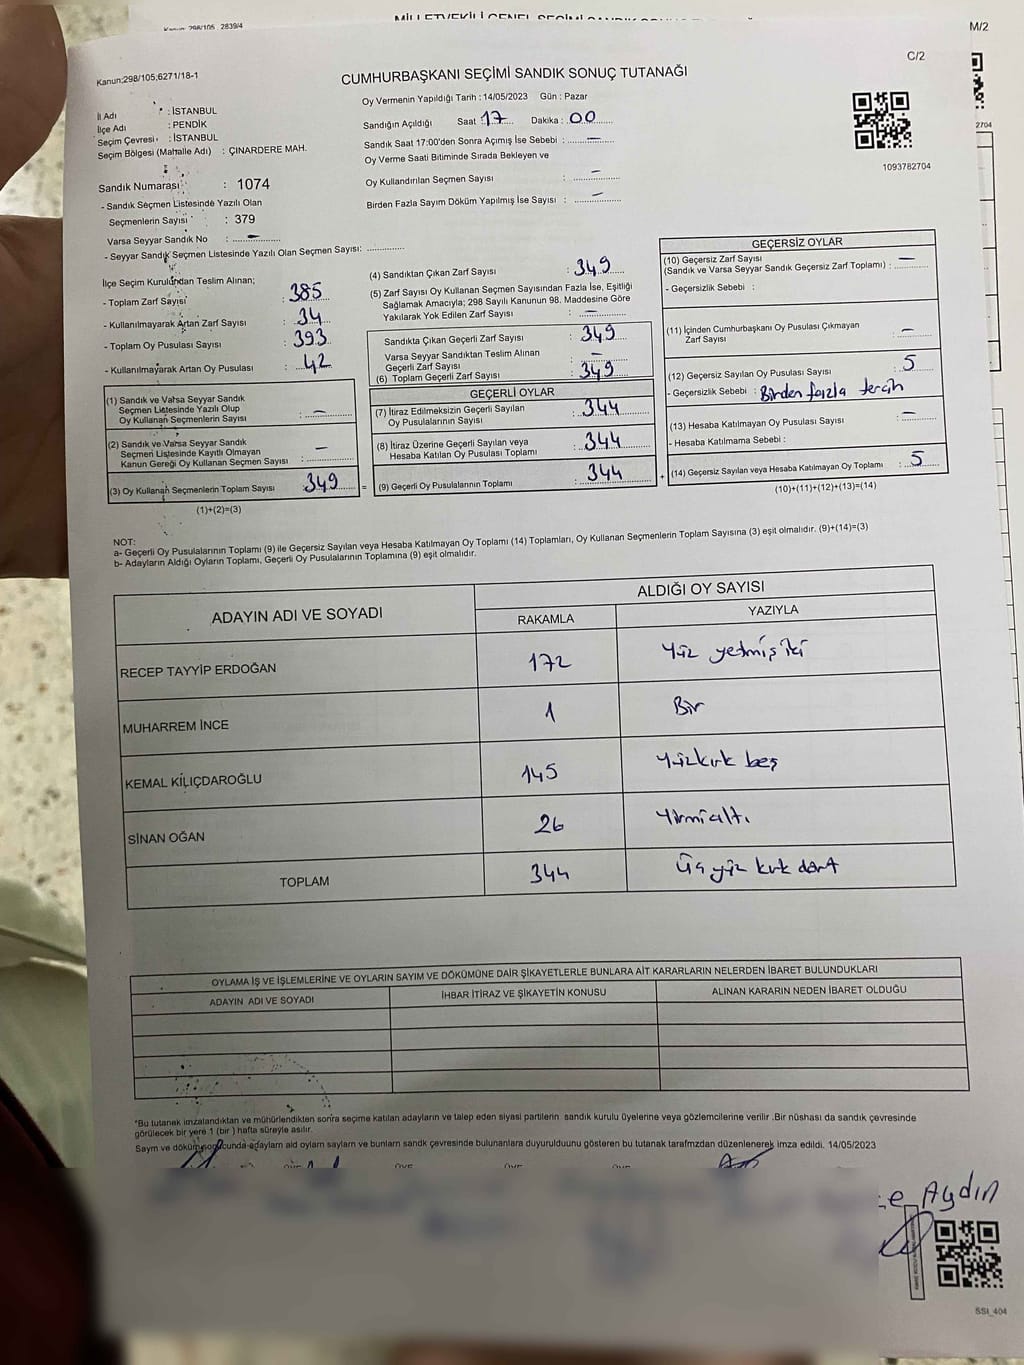 Kanun: 298/105 2839/4
MİLLETVEKİLİ GENEL SEÇİMİ
M/2
Kanun:298/105;6271/18-1
C/2
CUMHURBAŞKANI SEÇİMİ SANDIK SONUÇ TUTANAĞI
İl Adı : İSTANBUL
İlçe Adı : PENDİK
Seçim Çevresi : İSTANBUL
Seçim Bölgesi (Mahalle Adı) : ÇINARDERE MAH.
Oy Vermenin Yapıldığı Tarih : 14/05/2023 Gün : Pazar
Sandığın Açıldığı Saat : 17 Dakika : 00
Sandık Saat 17:00'den Sonra Açımış İse Sebebi : —
Oy Verme Saati Bitiminde Sırada Bekleyen ve
Oy Kullandırılan Seçmen Sayısı : —
Birden Fazla Sayım Döküm Yapılmış İse Sayısı : —
2704
1093782704
Sandık Numarası : 1074
- Sandık Seçmen Listesinde Yazılı Olan
Seçmenlerin Sayısı : 379
Varsa Seyyar Sandık No : —
- Seyyar Sandık Seçmen Listesinde Yazılı Olan Seçmen Sayısı:
İlçe Seçim Kurulundan Teslim Alınan;
- Toplam Zarf Sayısı : 385
- Kullanılmayarak Artan Zarf Sayısı : 34
- Toplam Oy Pusulası Sayısı : 393
- Kullanılmayarak Artan Oy Pusulası : 42
(1) Sandık ve Varsa Seyyar Sandık
Seçmen Listesinde Yazılı Olup
Oy Kullanan Seçmenlerin Sayısı : —
(2) Sandık ve Varsa Seyyar Sandık
Seçmen Listesinde Kayıtlı Olmayan
Kanun Gereği Oy Kullanan Seçmen Sayısı : —
(3) Oy Kullanan Seçmenlerin Toplam Sayısı : 349 =
(1)+(2)=(3)
(4) Sandıktan Çıkan Zarf Sayısı : 349
(5) Zarf Sayısı Oy Kullanan Seçmen Sayısından Fazla İse, Eşitliği
Sağlamak Amacıyla; 298 Sayılı Kanunun 98. Maddesine Göre
Yakılarak Yok Edilen Zarf Sayısı : —
Sandıkta Çıkan Geçerli Zarf Sayısı : 349
Varsa Seyyar Sandıktan Teslim Alınan
Geçerli Zarf Sayısı : —
(6) Toplam Geçerli Zarf Sayısı : 349
GEÇERLİ OYLAR
(7) İtiraz Edilmeksizin Geçerli Sayılan
Oy Pusulalarının Sayısı : 344
(8) İtiraz Üzerine Geçerli Sayılan veya
Hesaba Katılan Oy Pusulası Toplamı : 344
(9) Geçerli Oy Pusulalarının Toplamı : 344 +
GEÇERSİZ OYLAR
(10) Geçersiz Zarf Sayısı
(Sandık ve Varsa Seyyar Sandık Geçersiz Zarf Toplamı) : —
- Geçersizlik Sebebi :
(11) İçinden Cumhurbaşkanı Oy Pusulası Çıkmayan
Zarf Sayısı : —
(12) Geçersiz Sayılan Oy Pusulası Sayısı : 5
- Geçersizlik Sebebi : Birden fazla tercih
(13) Hesaba Katılmayan Oy Pusulası Sayısı : —
- Hesaba Katılmama Sebebi :
(14) Geçersiz Sayılan veya Hesaba Katılmayan Oy Toplamı : 5
(10)+(11)+(12)+(13)=(14)
NOT:
a- Geçerli Oy Pusulalarının Toplamı (9) ile Geçersiz Sayılan veya Hesaba Katılmayan Oy Toplamı (14) Toplamları, Oy Kullanan Seçmenlerin Toplam Sayısına (3) eşit olmalıdır. (9)+(14)=(3)
b- Adayların Aldığı Oyların Toplamı, Geçerli Oy Pusulalarının Toplamına (9) eşit olmalıdır.
ADAYIN ADI VE SOYADI
ALDIĞI OY SAYISI
RAKAMLA YAZIYLA
RECEP TAYYİP ERDOĞAN 172 Yüz yetmiş iki
MUHARREM İNCE 1 Bir
KEMAL KILIÇDAROĞLU 145 Yüzkırk beş
SİNAN OĞAN 26 Yirmialtı
TOPLAM 344 Üç yüz kırk dört
OYLAMA İŞ VE İŞLEMLERİNE VE OYLARIN SAYIM VE DÖKÜMÜNE DAİR ŞİKAYETLERLE BUNLARA AİT KARARLARIN NELERDEN İBARET BULUNDUKLARI
ADAYIN ADI VE SOYADI İHBAR İTİRAZ VE ŞİKAYETİN KONUSU ALINAN KARARIN NEDEN İBARET OLDUĞU
*Bu tutanak imzalandıktan ve mühürlendikten sonra seçime katılan adayların ve talep eden siyasi partilerin sandık kurulu üyelerine veya gözlemcilerine verilir .Bir nüshası da sandık çevresinde
görülecek bir yere 1 (bir ) hafta süreyle asılır.
Sayım ve döküm sonucunda adayların aldığı oyların sayıları ve bunların sandık çevresinde bulunanlara duyurulduğunu gösteren bu tutanak tarafımızdan düzenlenerek imza edildi. 14/05/2023
Aydın
SSI_404